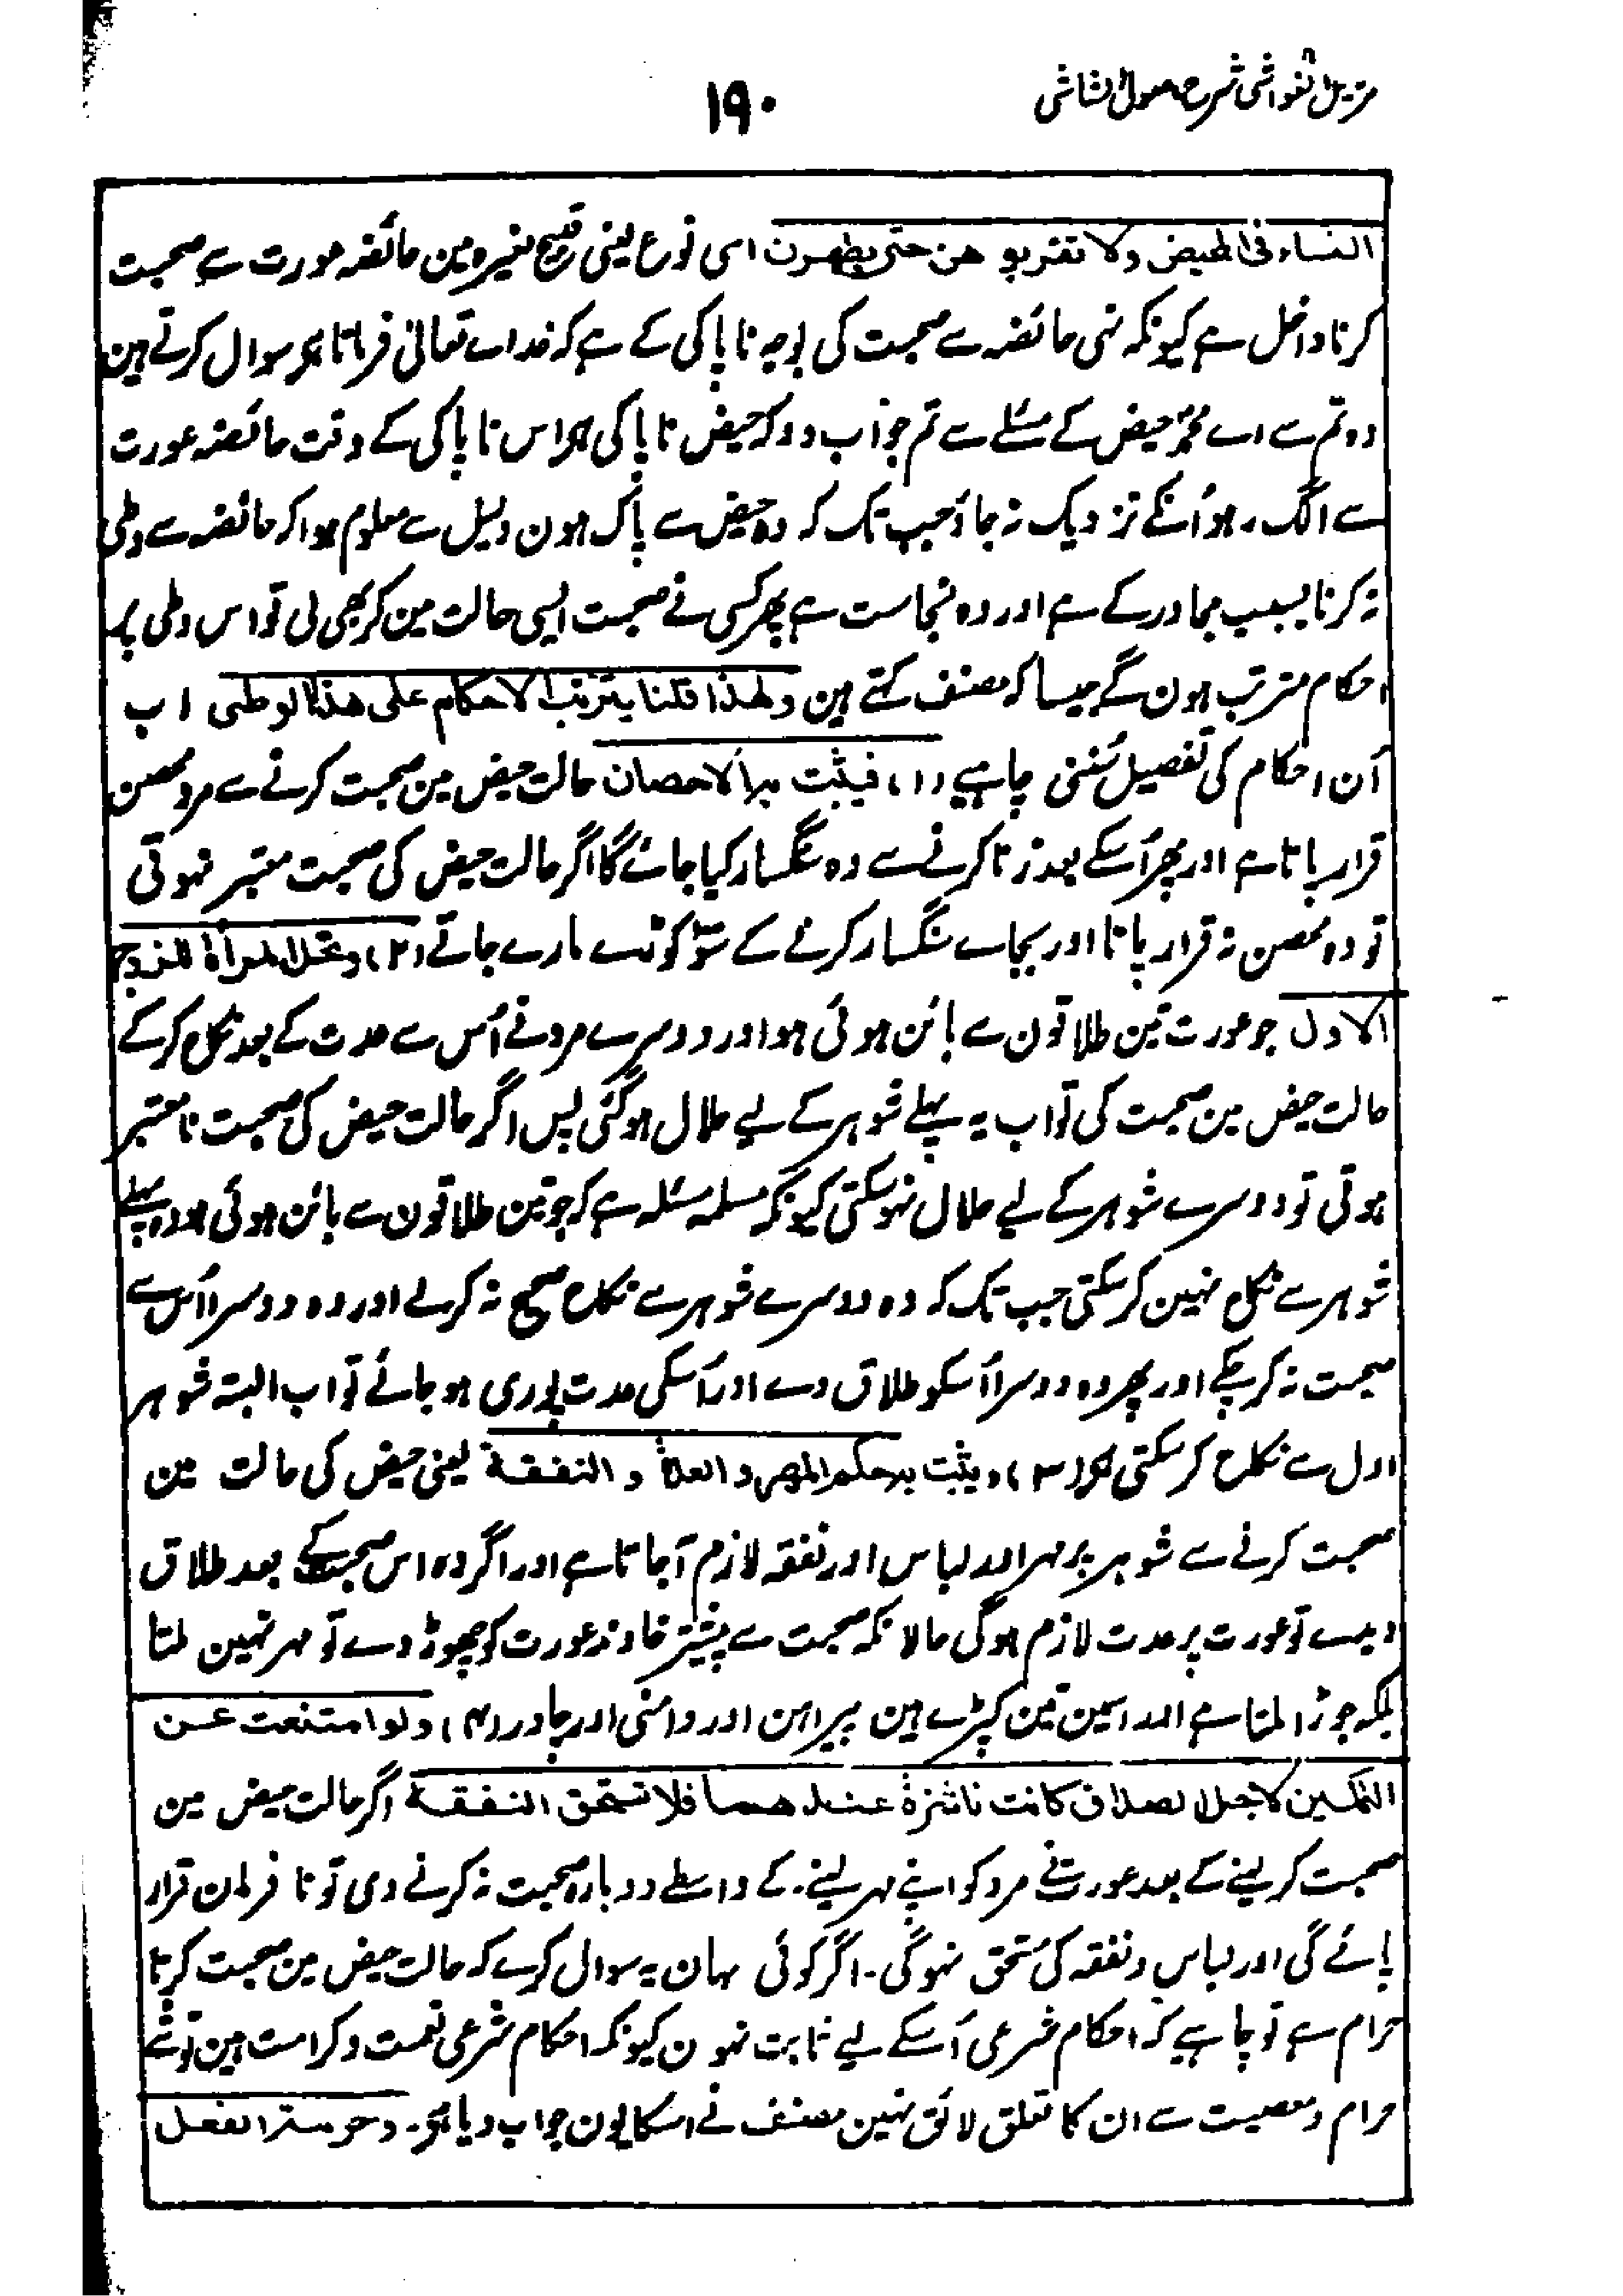 مزیل الغواشی شرح اصول الشاشی
۱۹۰
النساء فی المحیض ولا تقربو هن حتی یطهرن اسی نوع یعنی قبیح لغیرہ مین حائضہ عورت سے صحبت
کرنا داخل ہے کیونکہ نہی حائضہ سے صحبت کی بوجہ ناپاکی کے ہے کہ خداے تعالیٰ فرماتا ہے سوال کرتے ہین
وہ تم سے اے محمدؐ حیض کے مسئلے سے تم جواب دو کہ حیض ناپاکی ہے اس ناپاکی کے وقت حائضہ عورت
سے الگ رہو اُنکے نزدیک نہ جاؤ جب تک کہ وہ حیض سے پاک ہون دلیل سے معلوم ہوا کہ حائضہ سے وطی
نہ کرنا بسبب مجاور کے ہے اور وہ نجاست ہے پھر کسی نے صحبت ایسی حالت مین کر بھی لی تو اس وطی پر
احکام مترتب ہون گے جیسا کہ مصنف کہتے ہین ولهذا قلنا یترتب الاحکام علی هذا الوطی اب
اُن احکام کی تفصیل سُننی چاہیے (۱) فیثبت به الاحصان حالت حیض مین صحبت کرنے سے مرد محصن
قرار پاتا ہے اور پھر اُسکے بعد زنا کرنے سے وہ سنگسار کیا جائے گا اگر حالت حیض کی صحبت معتبر نہوتی
تو وہ محصن نہ قرار پاتا اور بجاے سنگسار کرنے کے سَو کوڑے مارے جاتے (۲) وتحل المرأة للزوج
الاول جو عورت تین طلاقون سے بائن ہوئی ہو اور دوسرے مرد نے اُس سے عدت کے بعد نکاح کرکے
حالت حیض مین صحبت کی تو اب یہ پہلے شوہر کے لیے حلال ہوگئی پس اگر حالت حیض کی صحبت نامعتبر
ہوتی تو دوسرے شوہر کے لیے حلال نہوسکتی کیونکہ مسلمہ مسئلہ ہے کہ جو تین طلاقون سے بائن ہوئی ہو وہ پہلے
شوہر سے نکاح نہین کرسکتی جب تک کہ وہ دوسرے شوہر سے نکاح صحیح نہ کرلے اور وہ دوسرا اُس سے
صحبت نہ کرچکے اور پھر وہ دوسرا اُسکو طلاق دے اور اُسکی عدت پوری ہوجائے تو اب البتہ شوہر
اول سے نکاح کرسکتی ہے (۳) ویثبت به حکم المهر والعدة والنفقة یعنی حیض کی حالت مین
صحبت کرنے سے شوہر پر مہر اور لباس اور نفقہ لازم آجاتا ہے اور اگر وہ اس صحبت کے بعد طلاق
دیدے تو عورت پر عدت لازم ہوگی حالانکہ صحبت سے پیشتر خاوند عورت کو چھوڑ دے تو مہر نہین ملتا
بلکہ جوڑا ملتا ہے اور اسمین تین کپڑے ہین پیراہن اور دامنی اور چادر (۴) ولو امتنعت عن
التمکین لاجل الصداق کانت ناشزة عندهما فلا تستحق النفقة اگر حالت حیض مین
صحبت کرلینے کے بعد عورت نے مرد کو اپنے مہر لینے کے واسطے دوبارہ صحبت نہ کرنے دی تو نافرمان قرار
پائے گی اور لباس و نفقہ کی مستحق نہوگی۔ اگر کوئی یہان یہ سوال کرے کہ حالت حیض مین صحبت کرنا
حرام ہے تو چاہیے کہ احکام شرعی اُسکے لیے ثابت نہون کیونکہ احکام شرعی نعمت و کرامت ہین تو شے
حرام و معصیت سے ان کا تعلق لائق نہین مصنف نے اسکا یون جواب دیا ہے۔ وحرمة الفعل